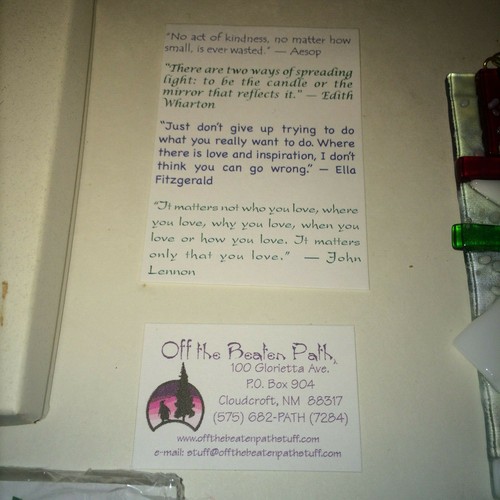 "No act of kindness, no matter how
small, is ever wasted." — Aesop
"There are two ways of spreading
light: to be the candle or the
mirror that reflects it." — Edith
Wharton
"Just don't give up trying to do
what you really want to do. Where
there is love and inspiration, I don't
think you can go wrong." — Ella
Fitzgerald
"It matters not who you love, where
you love, why you love, when you
love or how you love. It matters
only that you love." — John
Lennon
Off the Beaten Path
100 Glorietta Ave.
P.O. Box 904
Cloudcroft, NM 88317
(575) 682-PATH (7284)
www.offthebeatenpathstuff.com
e-mail: stuff@offthebeatenpathstuff.com